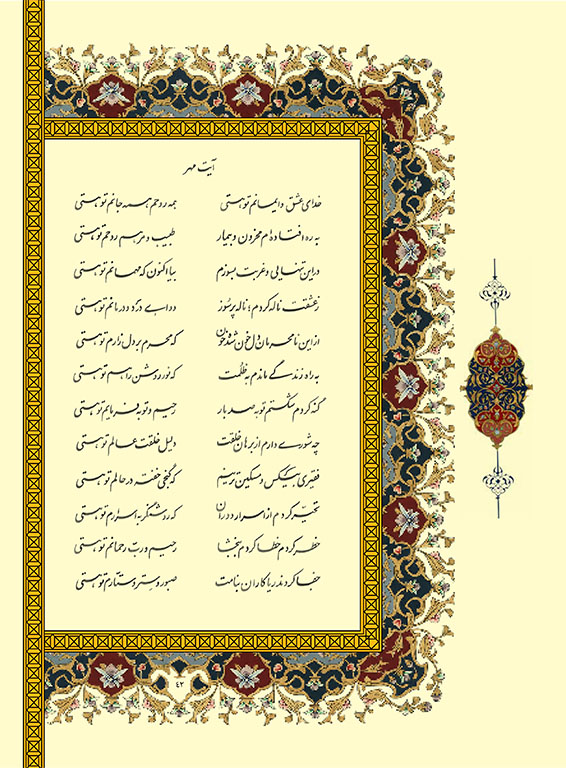 آیت مهر
خدای عشق و ایمانم تو هستی همه روحم همه جانم تو هستی
به ره افتاده‌ام محزون و بیمار طبیب و مرهم روحم تو هستی
در این تنهایی و غربت بسوزم بیا اکنون که مهمانم تو هستی
ز عشقت ناله کردم؛ ناله پرسوز دوای درد و درمانم تو هستی
از این نامحرمان دل خون شد و خون که محرم بر دل زارم تو هستی
به راه زندگی ماندم به ظلمت که نور روشن راهم تو هستی
گنه کردم شکستم توبه صد بار رحیم و توبه فرمایم تو هستی
چه شوری دارم از برهان خلقت دلیل خلقت عالم تو هستی
فقیری بیکس و مسکین ترینم که گنجی خفته در جانم تو هستی
تحیّر کردم از اسرار دوران که روشنگر به اسرارم تو هستی
خطر کردم خطا کردم ببخشا رحیم و ربّ رحمانم تو هستی
جفا کردند ریاکاران بنامت صبور و سِتر و ستّارم تو هستی
٤٢